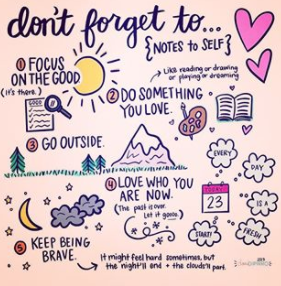 don't forget to...
{NOTES to SELF}
① FOCUS
ON THE GOOD
(It's there.)
GOOD
→ Like reading or drawing
or playing or dreaming
② DO SOMETHING
YOU LOVE.
③ GO OUTSIDE.
④ LOVE WHO YOU
ARE NOW.
(The past is over.
Let it go.)
EVERY
DAY
IS A
FRESH
START!
23
⑤ KEEP BEING
BRAVE.
→ It might feel hard sometimes, but
the night'll end + the clouds'll part.